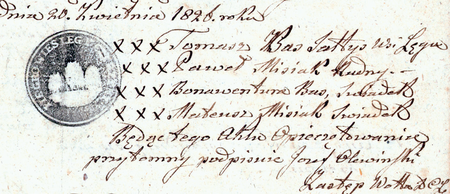 dnia 20. Kwietnia 1826. roku
XXX Tomasz Bas Sołtys wsi Łęgu
XXX Paweł Misiak Radny.
XXX Bonawentura Bas, Swiadek
XXX Mateusz Misiak Swiadek
Będąc tego Aktu Opieczętowanie
przytomny podpisuie Jozef Olewinski
Zastęp Woyta